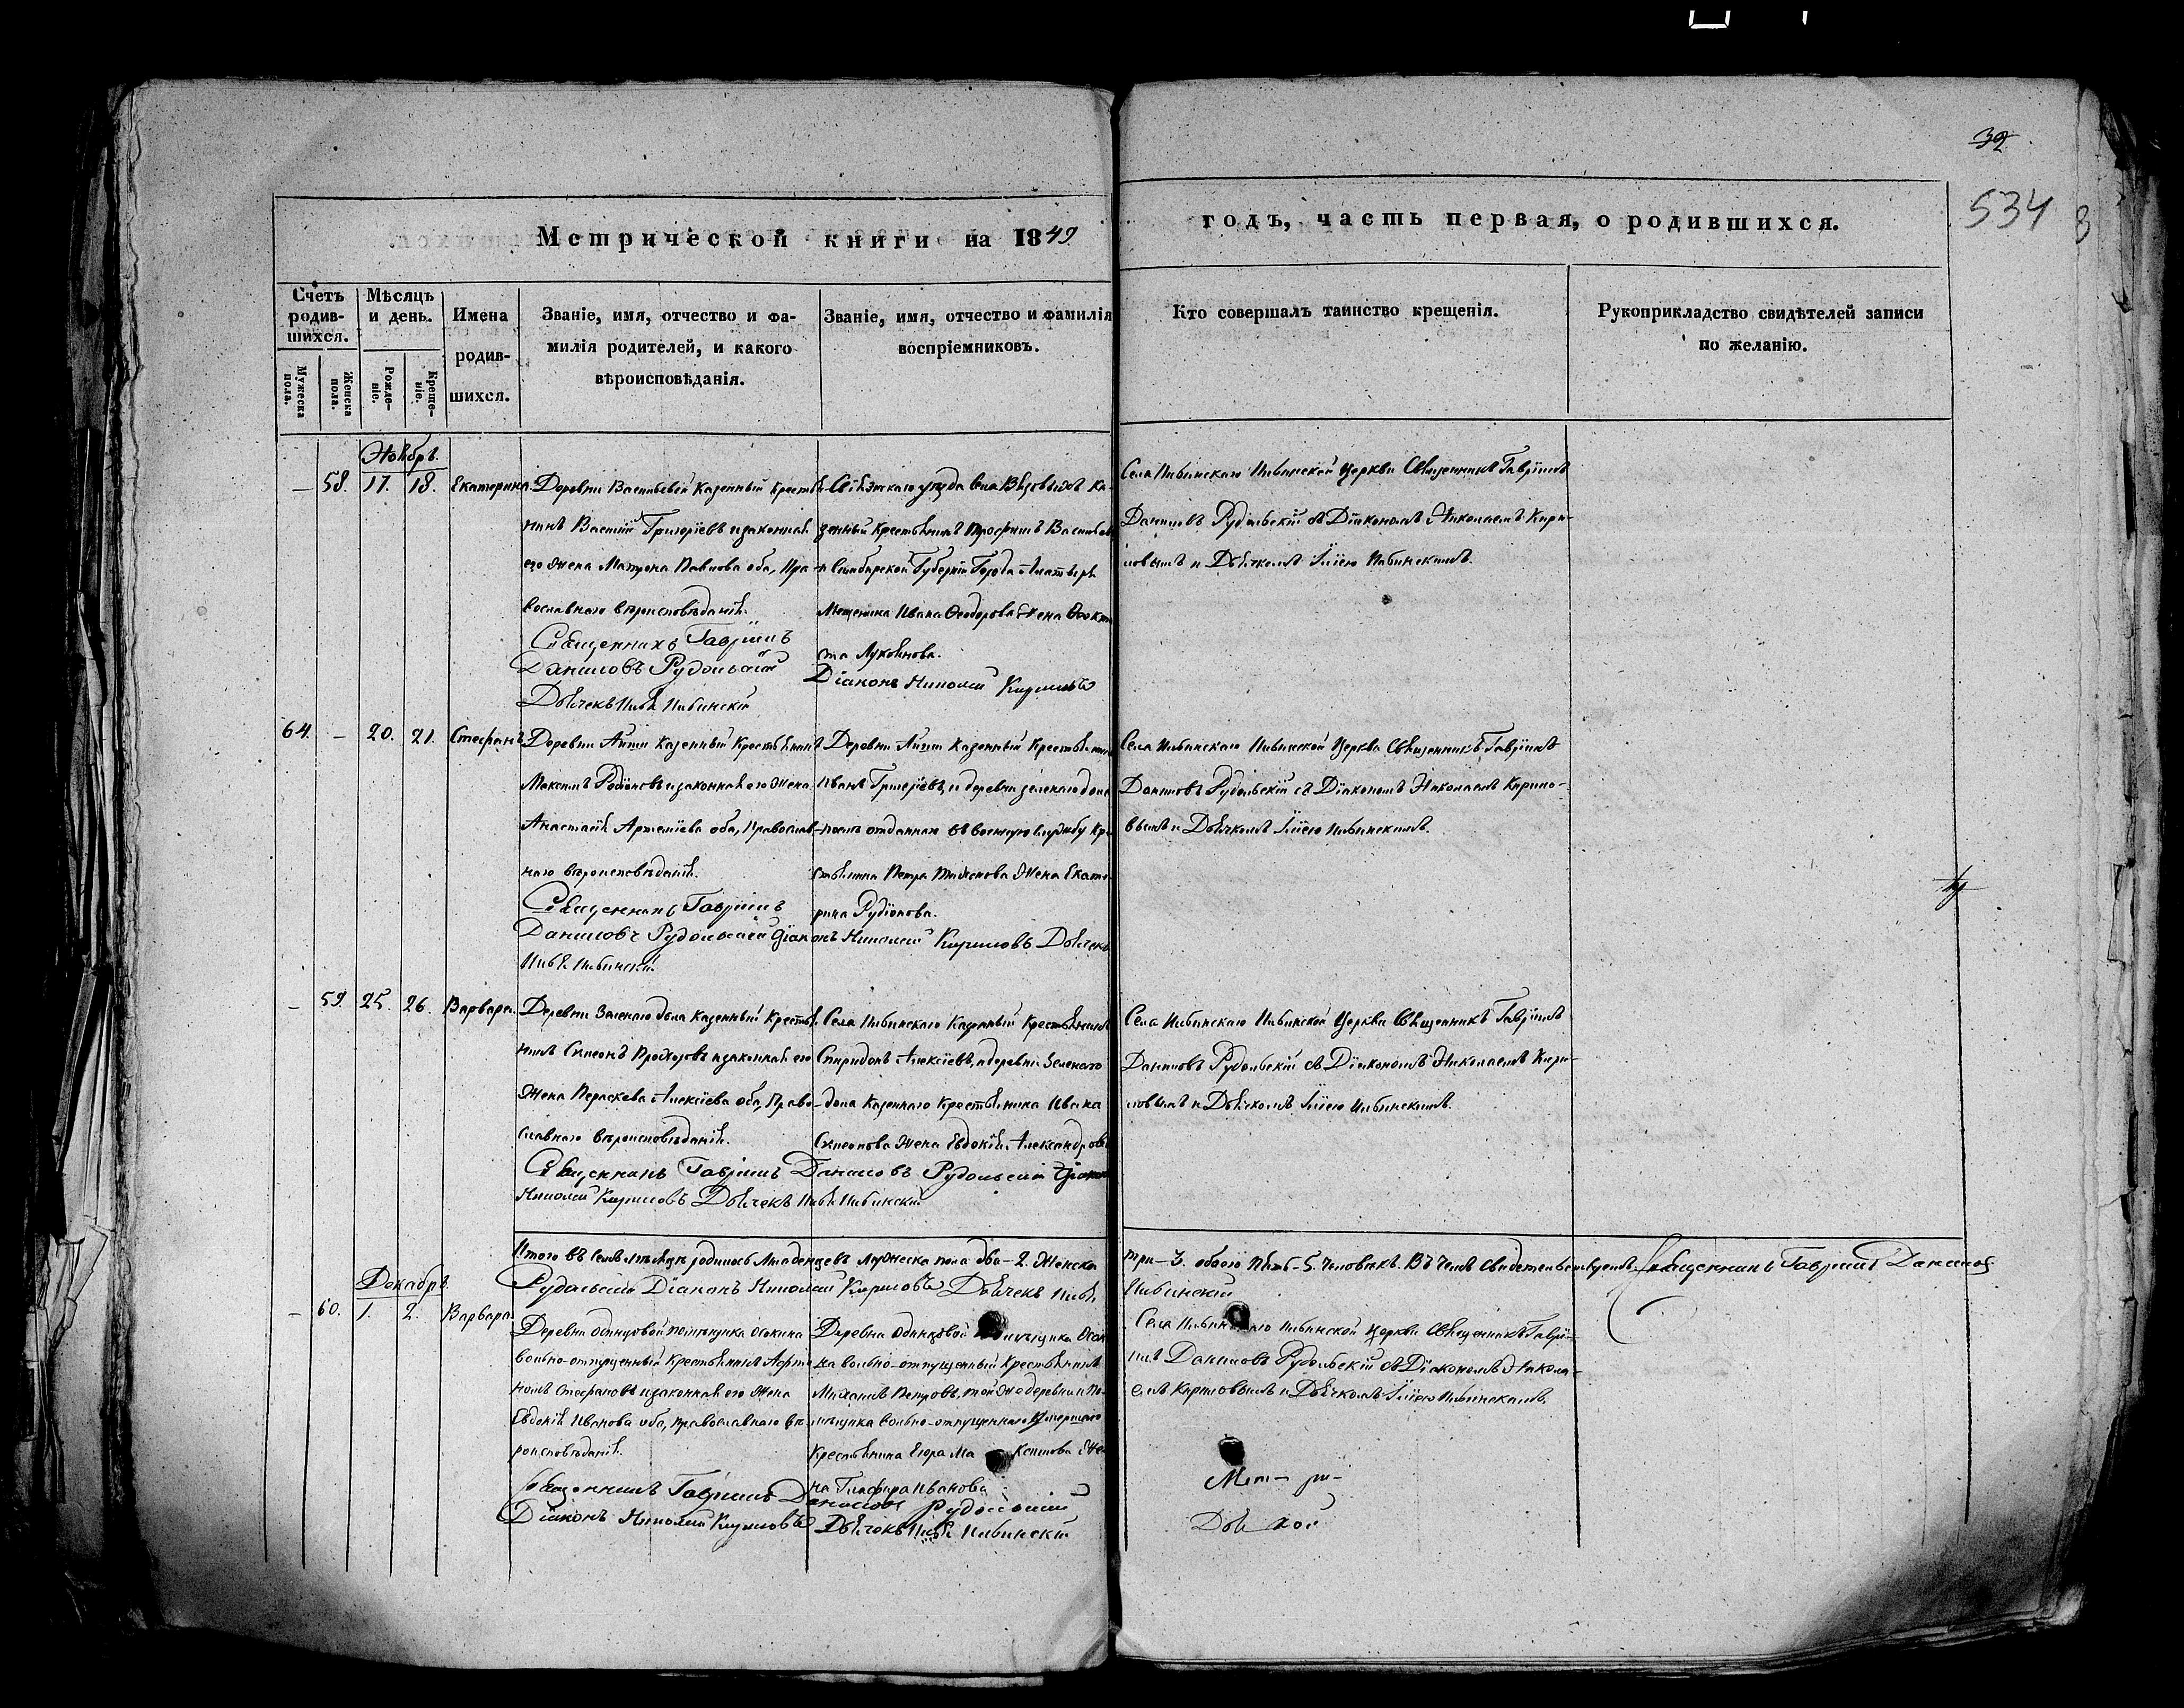 32
534
Метрической книги на 1849
годъ, часть первая, о родившихся.
Счетъ родив-шихся.
Мѣсяцъ и день.
Имена родив-шихся.
Званіе, имя, отчество и фа-
милія родителей, и какого
вѣроисповѣданія.
Званіе, имя, отчество и фамилія
воспріемниковъ.
Кто совершалъ таинство крещенія.
Рукоприкладство свидѣтелей записи
по желанію.
Мужеска пола.
Женска пола.
Рожде-ніе.
Креще-ніе.
Ноябрь.
— 58. 17. 18. Екатерина.
Деревни Васильевой Казенный Крестья-
нинъ Василій Григорьевъ и законная
его Жена Матрона Павлова оба, Пра-
вославнаго вѣроисповѣданія.
Священникъ Гавріилъ
Даниловъ Рудольскій
Дьячекъ Илья Ивинскій
Свіяжскаго уѣзда Села Вязовыхъ Ка-
зенный Крестьянинъ Васильев
и Симбирской Губерніи Города Алатыря
Мещанина Ивана Ѳеодорова Жена Ѳеокти
ста Лукоянова.
Діаконъ Николай Кириловъ
Села Ивинскаго Ивинской Церкви Священникъ Гавріилъ
Даниловъ Рудольскій съ Діакономъ Николаемъ Кири-
ловымъ и Дьячкомъ Иліею Ивинскимъ.
64. — 20. 21. Стефанъ
Деревни Казенный Крестьянинъ
Максимъ Родіоновъ и законная его Жена
Анастасія Артеміева оба, Православ-
наго вѣроисповѣданія.
Священникъ Гавріилъ
Даниловъ Рудольскій Діаконъ Николай Кириловъ Дьячекъ
Илья Ивинскій
Деревни Казенный Крестьянинъ
Иванъ Григорьевъ, и деревни Зеленаго дола
отданнаго въ военную службу Кре
стьянина Петра Тихонова Жена Екате-
рина Родіонова.
Села Ивинскаго Ивинской Церкви Священникъ Гавріилъ
Даниловъ Рудольскій съ Діакономъ Николаемъ Кирило-
вымъ и Дьячкомъ Иліею Ивинскимъ.
— 59. 25. 26. Варвара.
Деревни Зеленаго дола Казенный Крестья-
нинъ Симеонъ Прохоровъ и законная его
Жена Параскева Алексіева оба, Право-
славнаго вѣроисповѣданія.
Священникъ Гавріилъ Даниловъ Рудольскій Діаконъ
Николай Кириловъ Дьячекъ Илья Ивинскій
Села Ивинскаго Казенный Крестьянинъ
Спиридонъ Алексіевъ, и деревни Зеленаго
дола Казеннаго Крестьянина Ивана
Симеонова Жена Евдокія Александрова
Села Ивинскаго Ивинской Церкви Священникъ Гавріилъ
Даниловъ Рудольскій съ Діакономъ Николаемъ Кири-
ловымъ и Дьячкомъ Иліею Ивинскимъ.
Итого въ семъ мѣсяцѣ родилось Младенцевъ Мужеска пола два—2. Женска
три—3. обоего пять—5. человѣкъ. Въ чемъ свидетельствуемъ Священникъ Гавріилъ Даниловъ
Рудольскій Діаконъ Николай Кириловъ Дьячекъ Илья
Ивинскій
Декабрь
— 60. 1. 2. Варвара.
Деревни Одинцовой помѣщика Осокина
вольно-отпущенный Крестьянинъ
Стефановъ и законная его Жена
Евдокія Иванова оба, православнаго вѣ
роисповѣданія.
Священникъ Гавріилъ Даниловъ Рудольскій
Діаконъ Николай Кириловъ Дьячекъ Илья Ивинскій
Деревни Одинцовой помѣщика Осоки
на вольно-отпущенный Крестьянинъ
Михаилъ Петровъ, той же деревни и По-
мѣщика вольно-отпущеннаго умершаго
Крестьянина Егора Максимова Же
на Глафира Иванова
Села Ивинскаго Ивинской Церкви Священникъ Гаврі-
илъ Даниловъ Рудольскій съ Діакономъ Никола-
емъ Кириловымъ и Дьячкомъ Иліею Ивинскимъ.
Мет- ри-